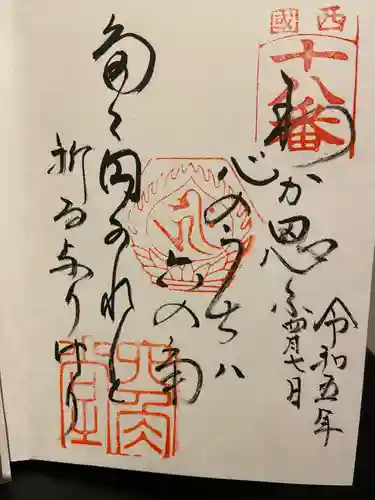 西國
十八番
わか思ふ
心のうちハ
六の角
たゝ円かれと
祈るなりけり
令和五年
四月七日
六角堂